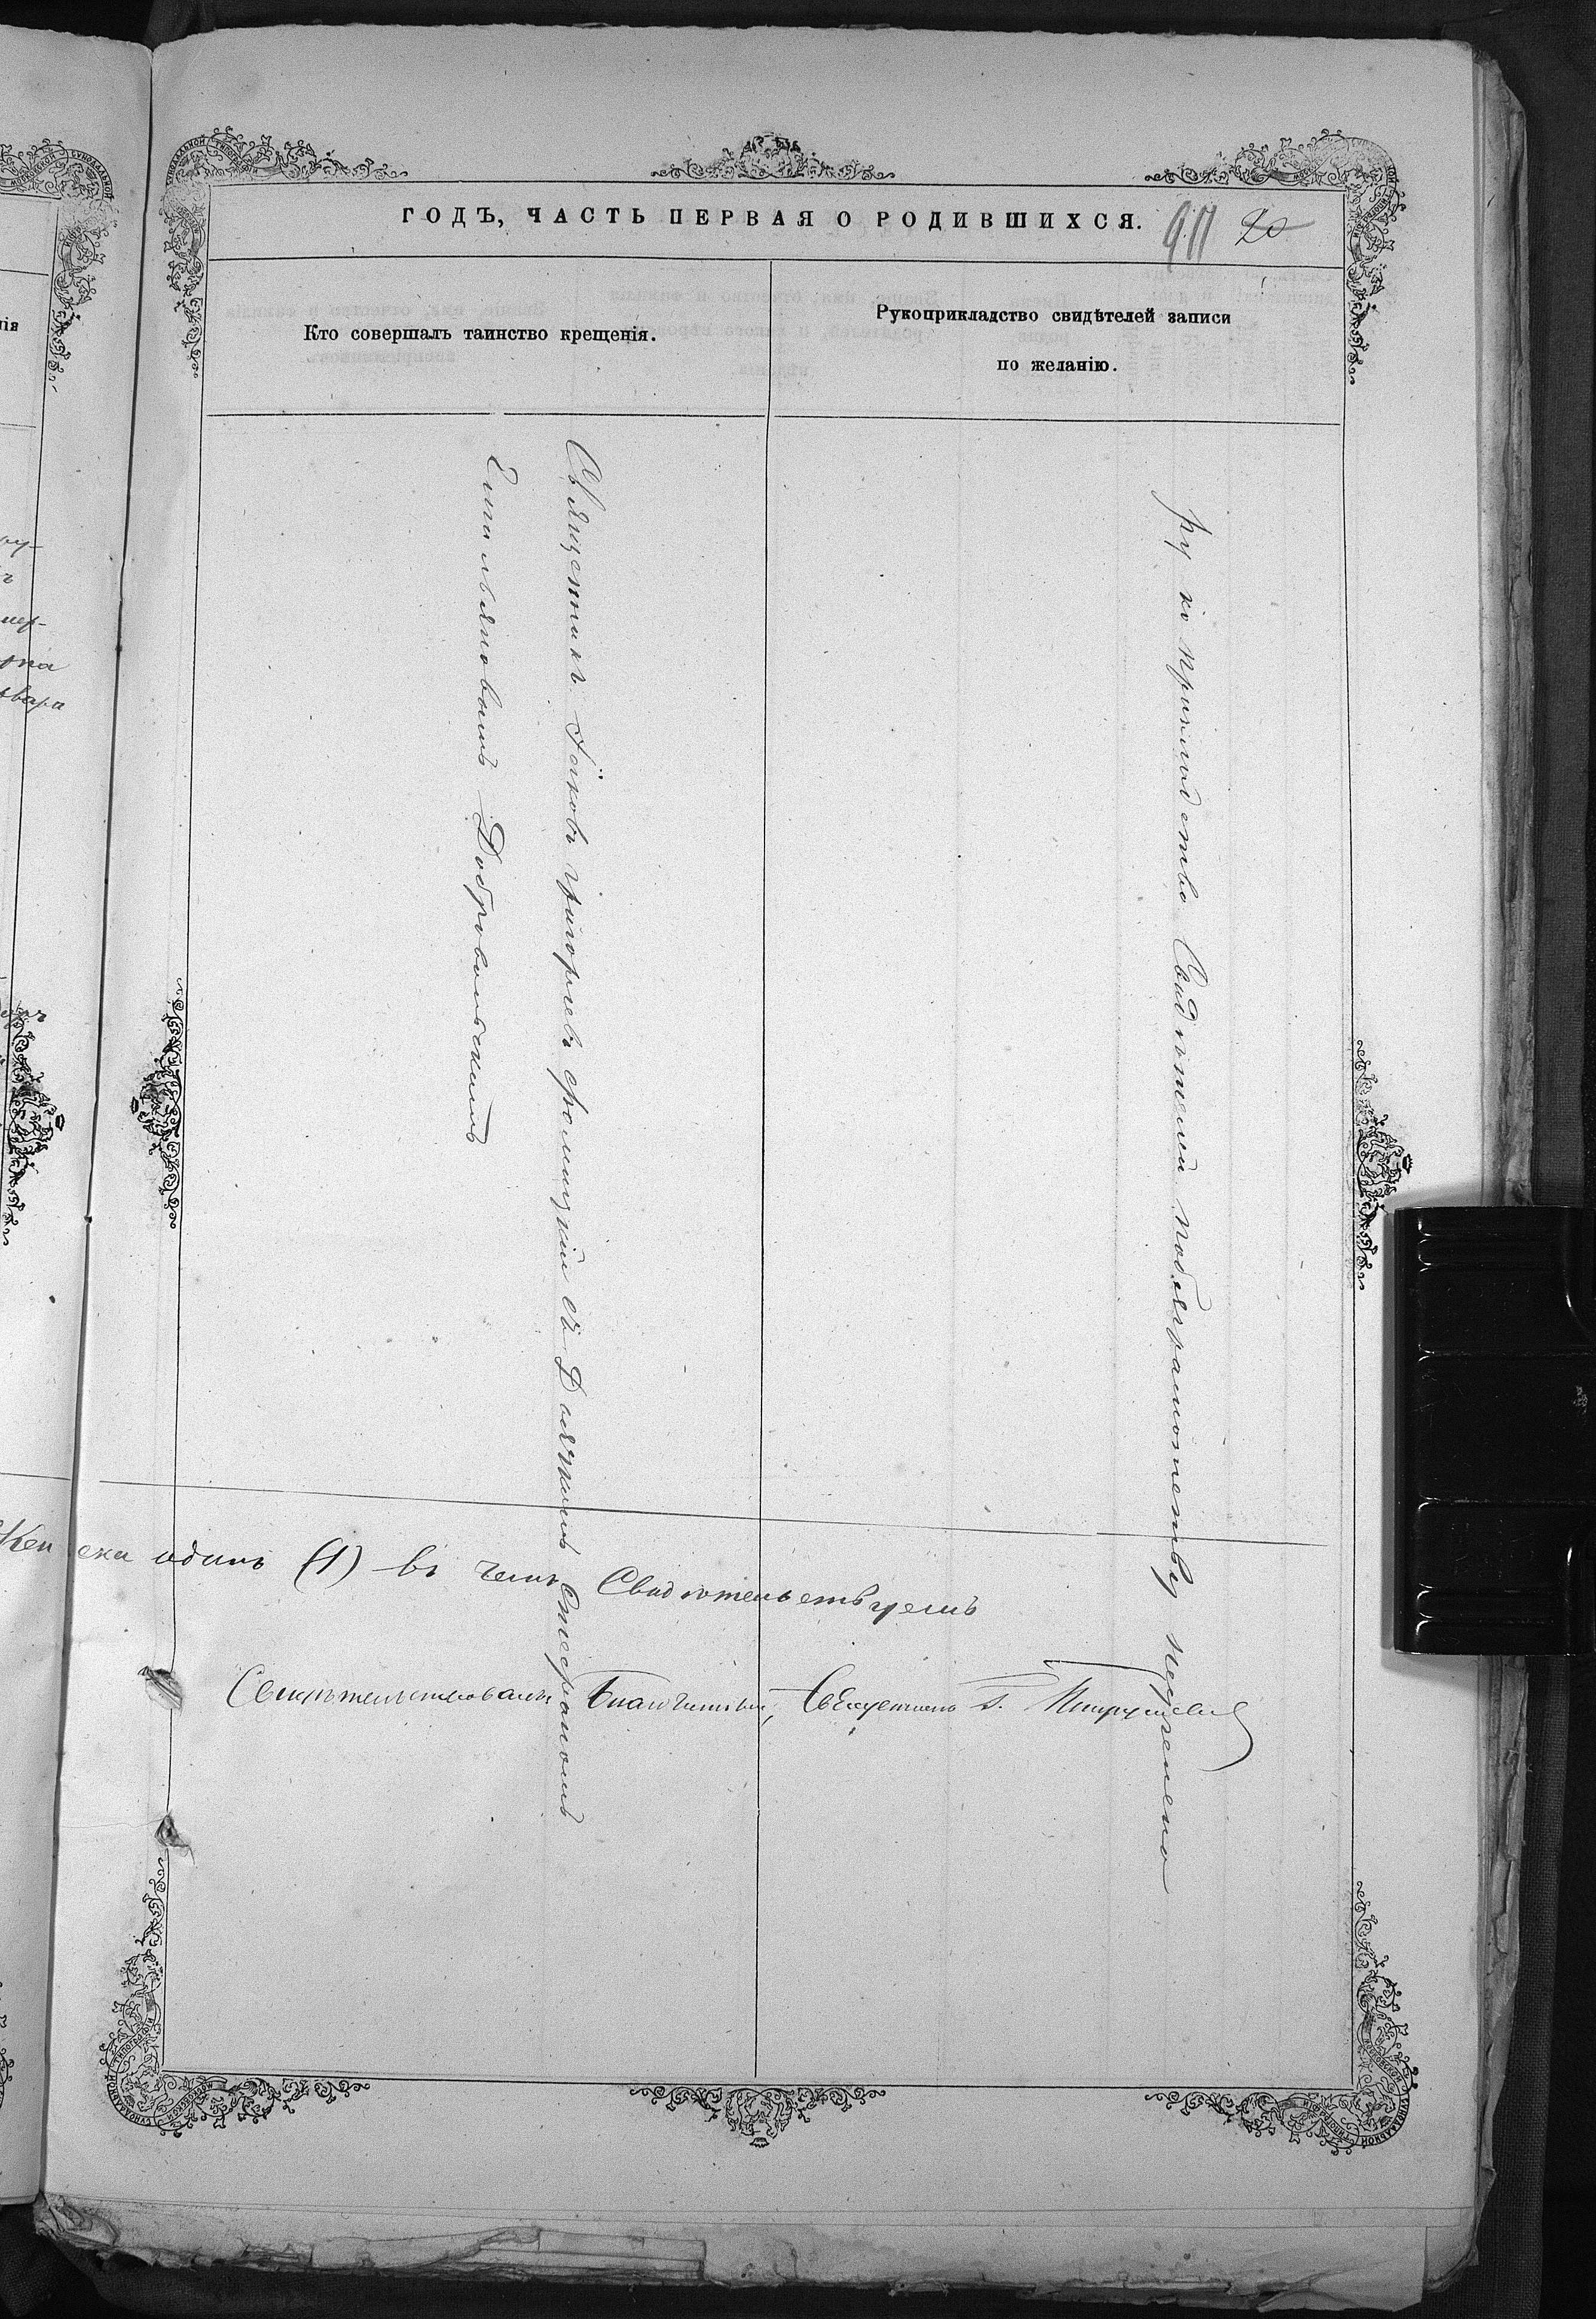 ГОДЪ, ЧАСТЬ ПЕРВАЯ О РОДИВШИХСЯ.
911 20
Кто совершалъ таинство крещенія.
Рукоприкладство свидѣтелей записи
по желанію.
Священникъ Іаковъ Григорьевъ съ Дьячкомъ Стефаномъ
Емильяновымъ Добровольскимъ
рукоприкладство Свидѣтелей побезграмотству неучинено
одинъ (1) въ чемъ Свидѣтельствуемъ
Свидѣтельствовалъ Благочинный, Священникъ